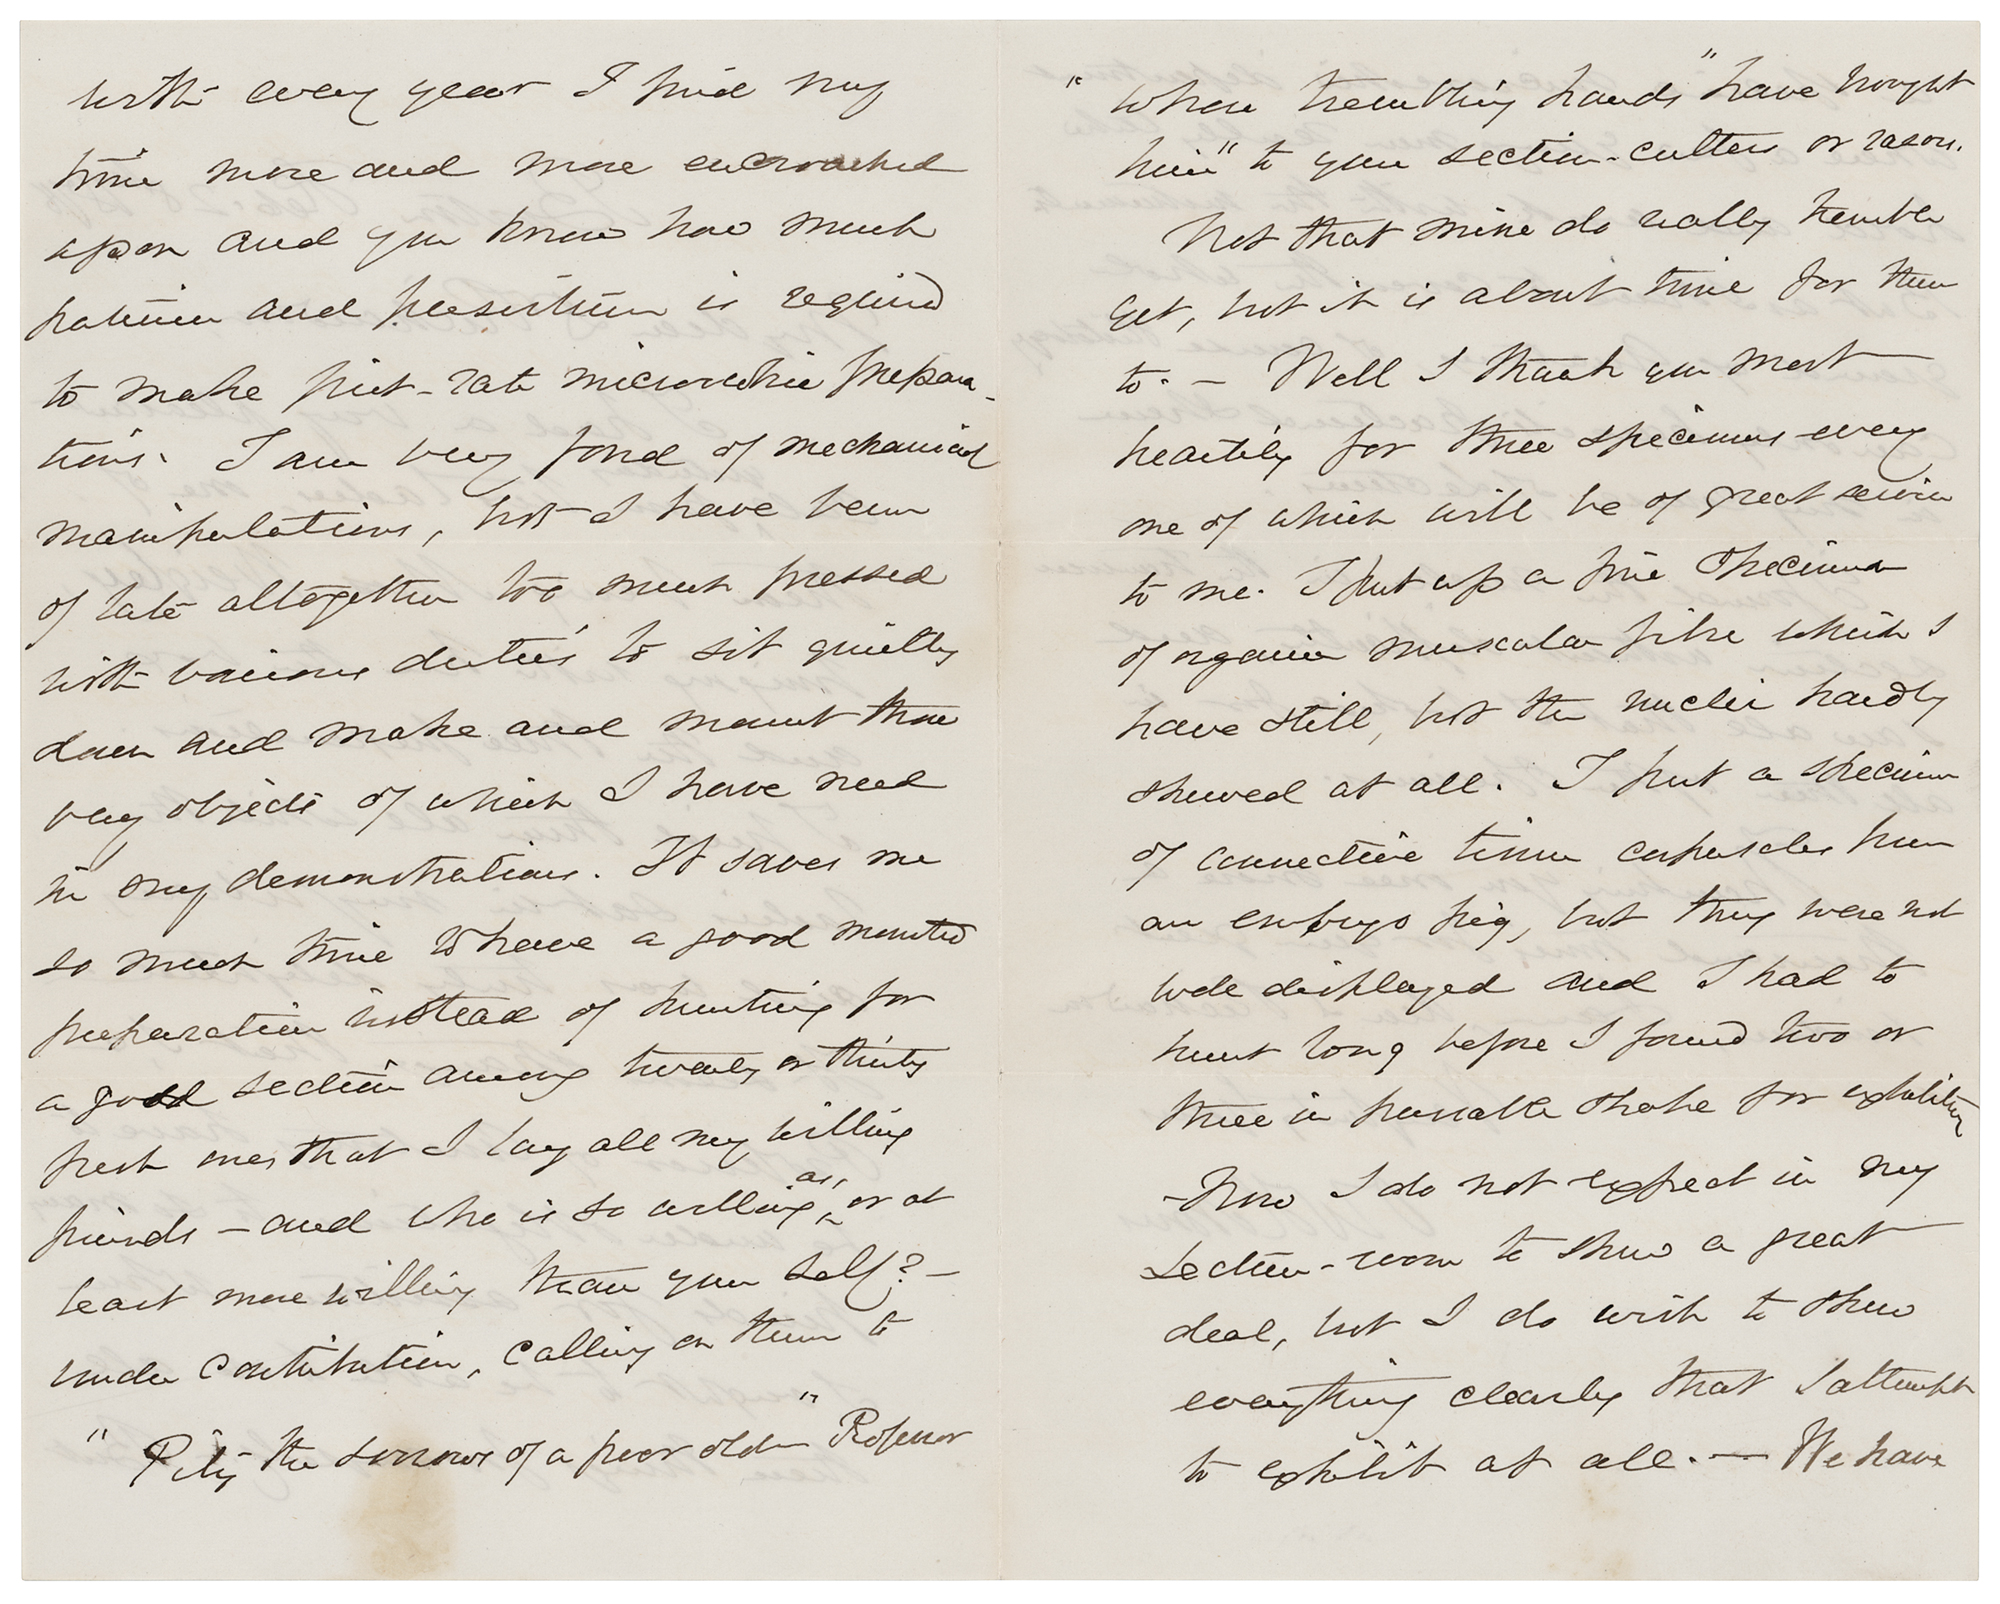 with every year I find my
time more and more encroached
upon and you know how much
patience and persistence is required
to make first-rate microscopic prepara-
tions. I am very fond of mechanical
manipulations, but I have been
of late altogether too much pressed
with various duties to sit quietly
down and make and mount those
very objects of which I have need
in my demonstrations. It saves me
so much time to have a good mounted
preparation instead of hunting for
a good section among twenty or thirty
fresh ones that I lay all my willing
friends – and who is so willing as, or at
least more willing than your self? –
under contribution, calling on them to
"Pity the sorrows of a poor old" Professor
"Whose trembling hands" have brought
him" to your section-cutter or razor.
Not that mine do really tremble
yet, but it is about time for them
to. – Well I thank you most
heartily for these specimens every
one of which will be of great service
to me. I put up a fine specimen
of organic muscular fibre which I
have still, but the nuclei hardly
showed at all. I put a specimen
of connective tissue corpuscles from
an embryo pig, but they were not
well displayed and I had to
hunt long before I found two or
three in passable shape for exhibiting
– Now I do not expect in my
lecture-room to show a great
deal, but I do wish to show
everything clearly that I attempt
to exhibit at all. — We have